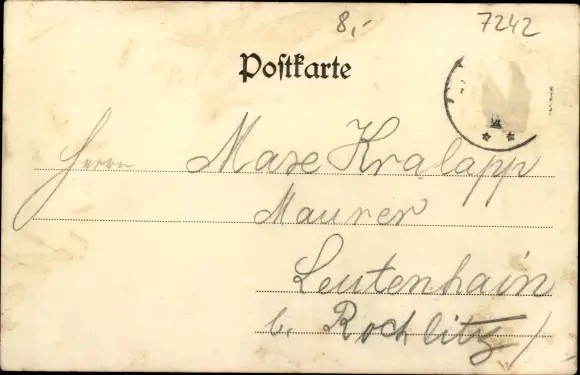 8,- 7242
Postkarte
Herrn Maxe Kralapp
Maurer
Leutenhain
b. Rochlitz